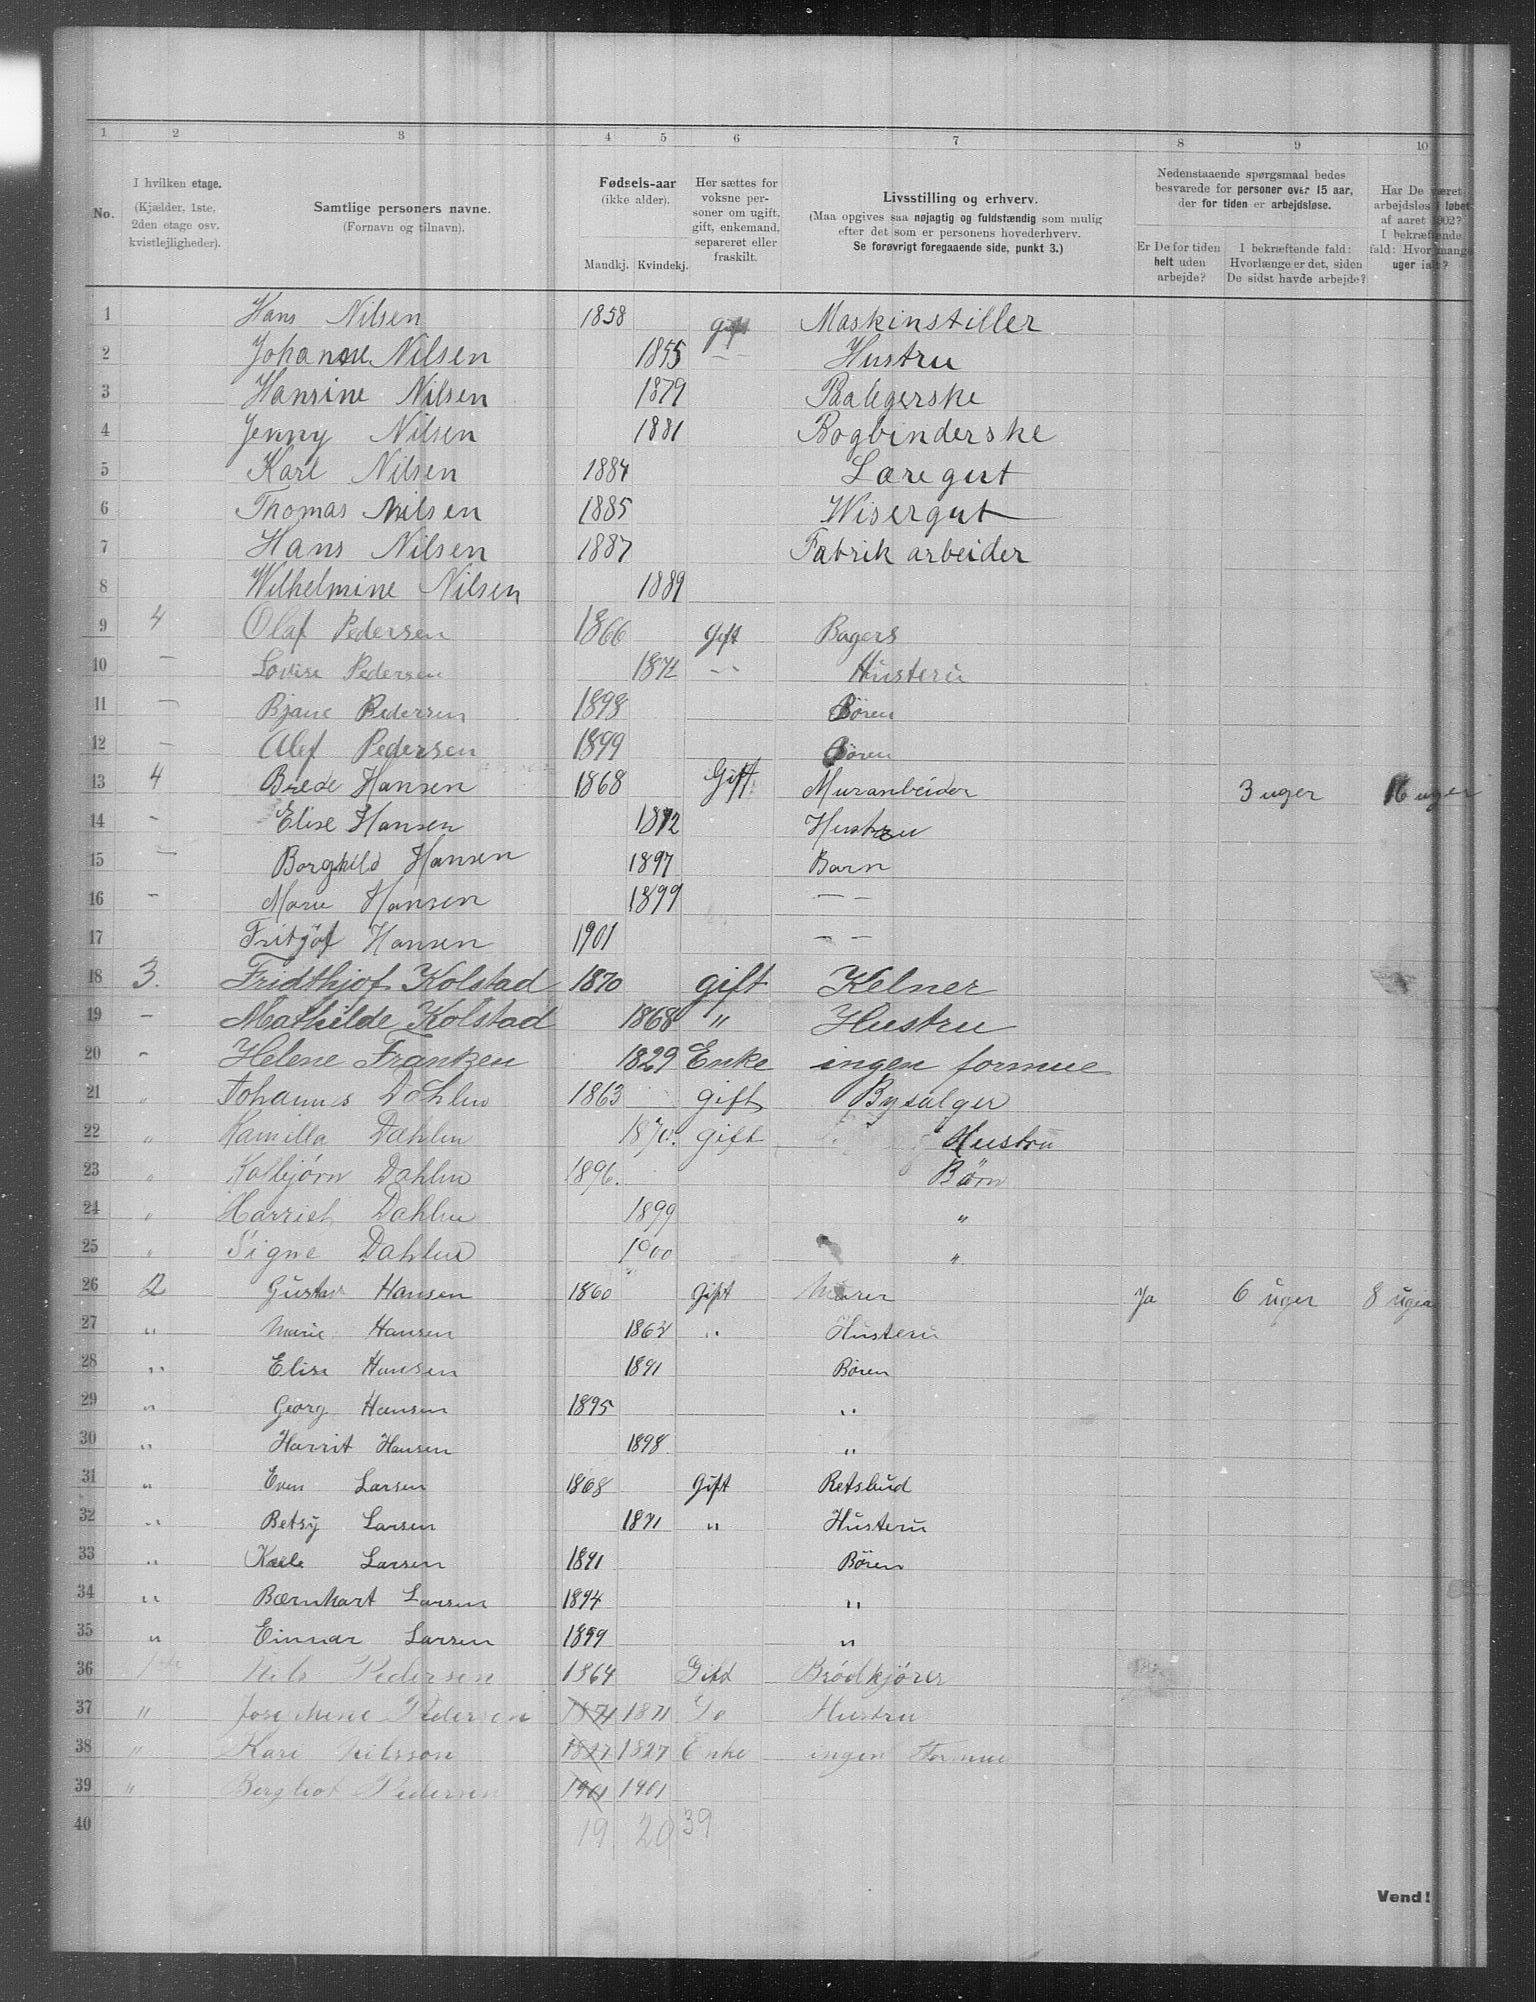 1 2 3 4 5 6 7 8 9 10
No.
I hvilken etage.
(Kjælder, 1ste, 2den etage osv. kvistlejligheder).
Samtlige personers navne.
(Fornavn og tilnavn).
Fødsels-aar
(ikke alder).
Mandkj. Kvindekj.
Her sættes for voksne personer om ugift, gift, enkemand, separeret eller fraskilt.
Livsstilling og erhverv.
(Maa opgives saa nøjagtig og fuldstændig som mulig efter det som er personens hovederhverv.
Se forøvrigt foregaaende side, punkt 3.)
Nedenstaaende spørgsmaal bedes besvarede for personer over 15 aar, der for tiden er arbejdsløse.
Er De for tiden helt uden arbejde?
I bekræftende fald: Hvorlænge er det, siden De sidst havde arbejde?
Har De været arbejdsløs i løbet af aaret 1902? I bekræftende fald: Hvor mange uger ialt?
1 Hans Nilsen 1858 gift Maskinstiller
2 Johanne Nilsen 1855 — Hustru
3 Hansine Nilsen 1879
4 Jenny Nilsen 1881 Bogbinderske
5 Karl Nilsen 1884 Læregut
6 Thomas Nilsen 1885 Wisergut
7 Hans Nilsen 1887 Fabrik arbeider
8 Wilhelmine Nilsen 1889
9 4 Olaf Pedersen 1866 Gift Bagers
10 — Lovise Pedersen 1872 — Husteru
11 — Bjane Pedersen 1898 Bören
12 — Olef Pedersen 1899 Bören
13 4 Brede Hansen 1868 Gift Murarbeider 3 uger 16 uger
14 - Elise Hansen 1872 Hustru
15 — Borghild Hansen 1897 Barn
16 - Marie Hansen 1899 — —
17 Fritjöf Hansen 1901 — —
18 3. Fridthjof Kolstad 1870 gift Kelner
19 — Mathilde Kolstad 1868 " Hustru
20 - Helene Franken 1829 Enke ingen formue
21 " Johannes Dahlin 1863 gift Bysælger
22 " Kamilla Dahlin 1870. gift Hustru
23 " Kolbjörn Dahlin 1896. Börn
24 " Harriet Dahlin 1899 "
25 " Signe Dahlin 1900 "
26 2 Gustav Hansen 1860 Gift Murer Ja 6 uger 8 uger
27 " Marie Hansen 1862 " Husteru
28 " Elise Hansen 1891 Bören
29 " Georg Hansen 1895 "
30 " Harrit Hansen 1898 "
31 " Even Larsen 1868 Gift Retsbud
32 " Betsy Larsen 1871 " Husteru
33 " Larsen 1891 Bören
34 " Bærnhart Larsen 1894 "
35 " Einnar Larsen 1899 "
36 Nils Pedersen 1864 Gift Brödkjörer
37 " Josephine Pedersen 1871 1871 Do Hustru
38 " Kari Nilsson 1827 1827 Enke ingen Formue
39 " Bergliot Pedersen 1901 1901
40 19 20 39
Vend!